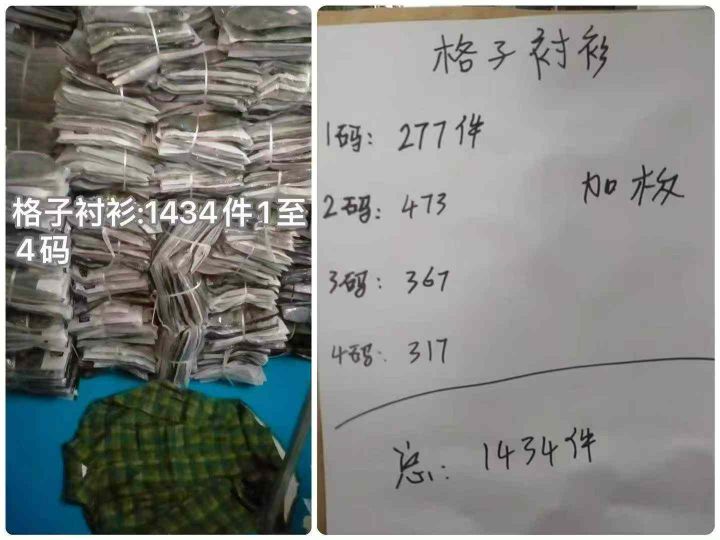 格子衬衫:1434件1至
4码
格子衬衫
1码: 277件
加枚
2码: 473
3码: 367
4码: 317
总: 1434件